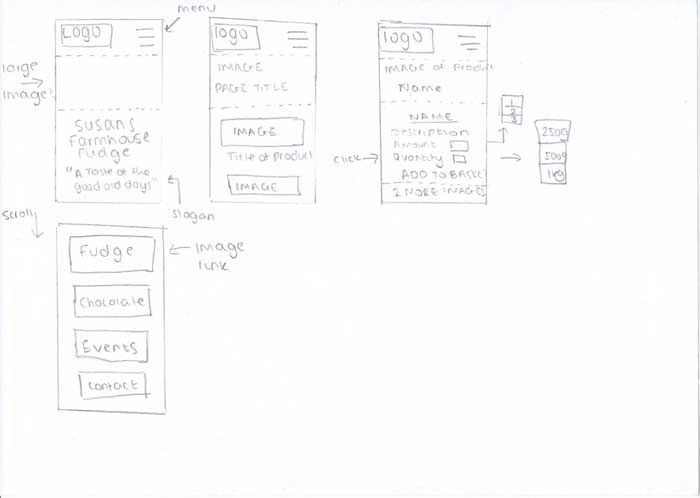 menu
LOGO
large
image?
susans
farmhouse
fudge
"A Taste of the
good old days"
slogan
scroll
Fudge
Chocolate
Events
Contact
image
link
logo
IMAGE
PAGE TITLE
IMAGE
Title of Product
IMAGE
logo
IMAGE of Product
Name
NAME
Description
Amount
Quantity
click
ADD TO BASKET
2 MORE IMAGES
1
2
3
250g
500g
1kg